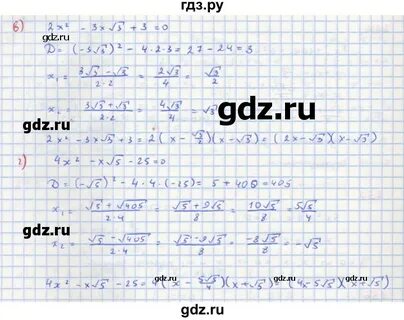 гдз.ру
в) 2x² - 3x√3 + 3 = 0
D = (-3√3)² - 4·2·3 = 27 - 24 = 3
x₁ = (3√3 - √3)/(2·2) = 2√3/4 = √3/2
x₂ = (3√3 + √3)/(2·2) = 4√3/4 = √3
gdz.ru
2x² - 3x√3 + 3 = 2(x - √3/2)(x - √3) = (2x - √3)(x - √3)
г) 4x² - x√5 - 25 = 0
D = (-√5)² - 4·4·(-25) = 5 + 400 = 405
x₁ = (√5 + √405)/(2·4) = (√5 + 9√5)/8 = 10√5/8 = 5√5/4
x₂ = (√5 - √405)/(2·4) = (√5 - 9√5)/8 = -8√5/8 = -√5
4x² - x√5 - 25 = 4(x - 5√5/4)(x + √5) = (4x - 5√5)(x + √5)
gdz.ru
gdz.ru